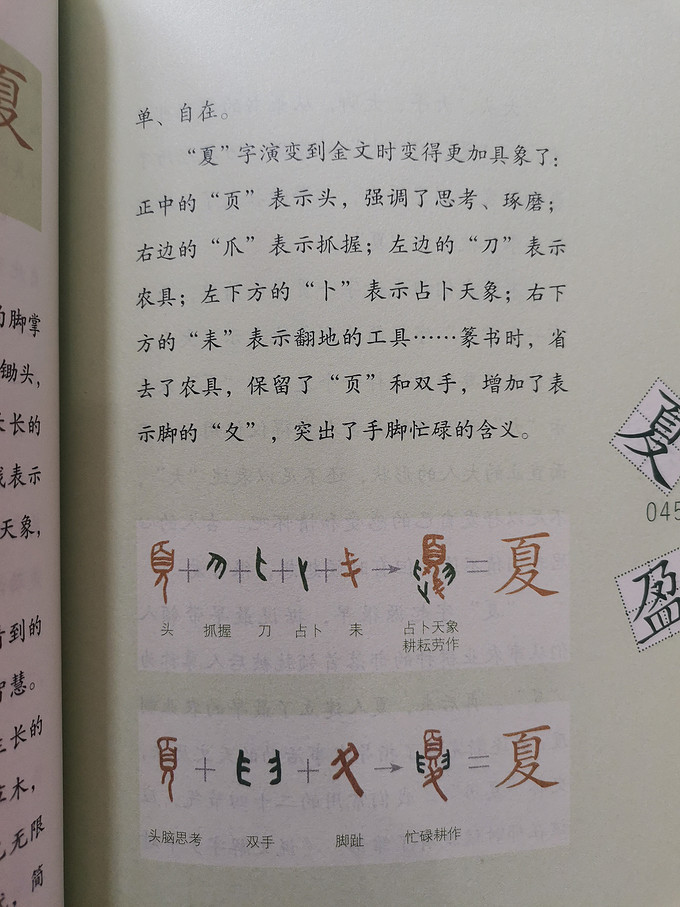 夏
的脚掌
锄头,
长的
表示
天象,
到的
智慧。
长的
木,
无限
简
单、自在。
“夏”字演变到金文时变得更加具象了：
正中的“页”表示头，强调了思考、琢磨；
右边的“爪”表示抓握；左边的“刀”表示
农具；左下方的“卜”表示占卜天象；右下
方的“耒”表示翻地的工具……篆书时，省
去了农具，保留了“页”和双手，增加了表
示脚的“夂”，突出了手脚忙碌的含义。
+ + + + → = 夏
头 抓握 刀 占卜 耒 占卜天象
耕耘劳作
+ + → = 夏
头脑思考 双手 脚趾 忙碌耕作
夏
045
盈